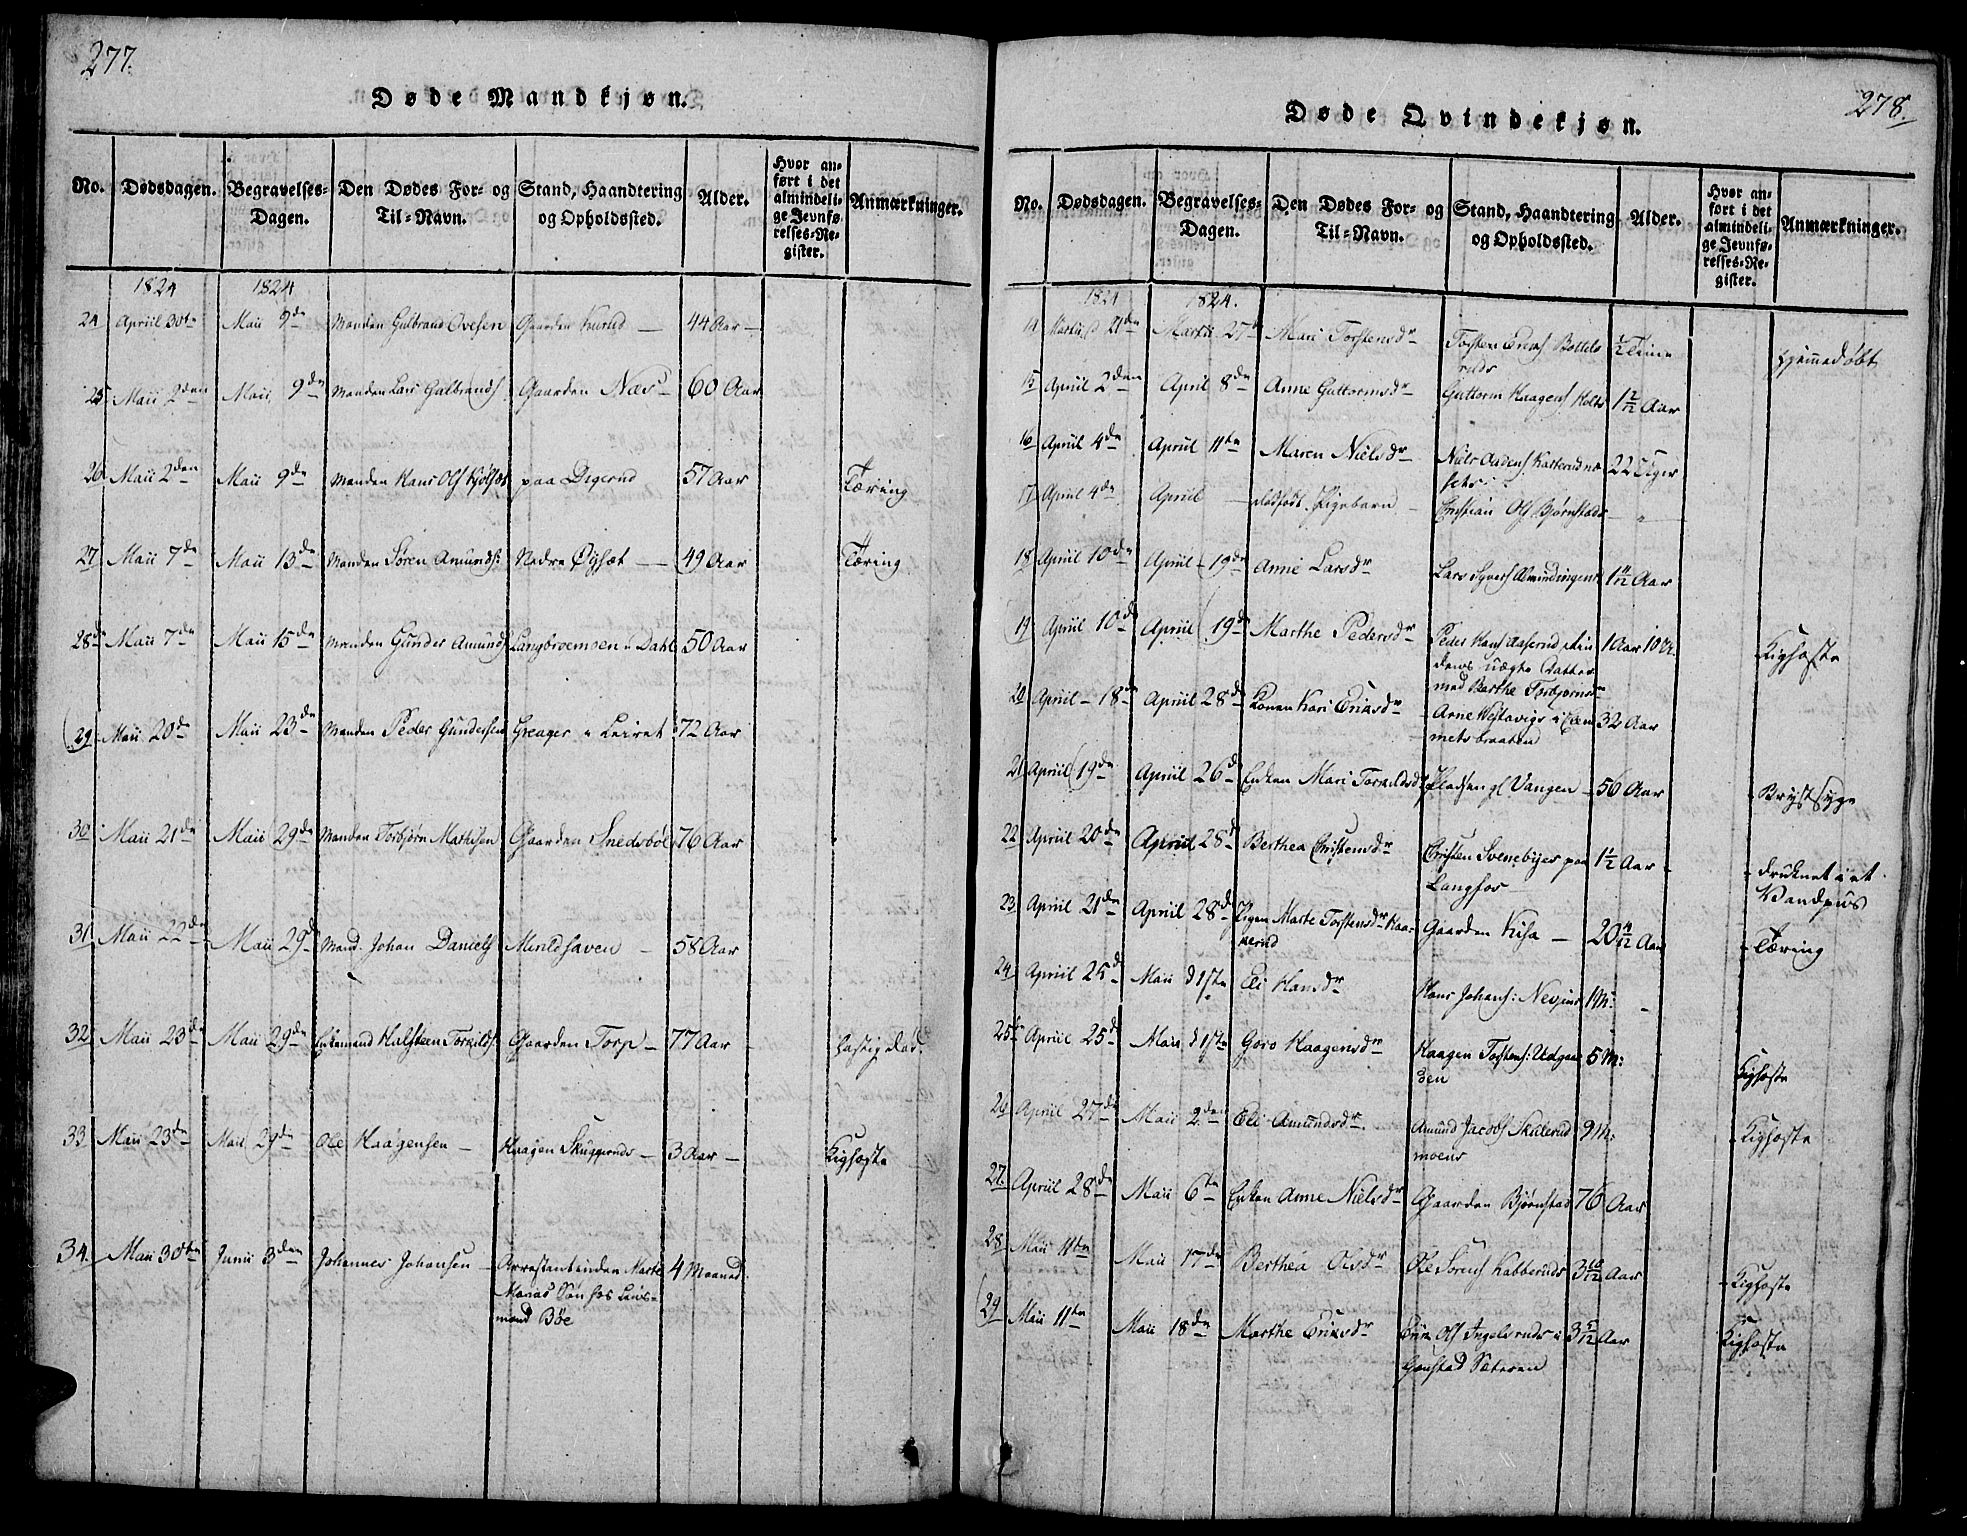 277.
Døde Mandkjøn.
No. Dødsdagen. Begravelses-Dagen. Den Dødes For- og Til-Navn. Stand, Haandtering og Opholdssted. Alder. Hvor anført i det almindelige Jevnførelses-Register. Anmærkninger.
1824 1824
24 Apriil 30te Maii 9de Manden Gulbrand Ovesen Gaarden 44 Aar
25 Maii 2den Maii 9de Manden Lars Gulbrands. Gaarden Næs 60 Aar
26 Maii 2den Maii 9de Manden Hans Ols. paa Digerud 57 Aar Tæring
27 Maii 7de Maii 13de Manden Søren Amunds: Nedre Øysæt 49 Aar Tæring
28de Maii 7de Maii 15de Manden Gunder Amunds. Langbroemoen i Dahl 50 Aar
29 Maii 20de Maii 23de Manden Peder Gundersen Greager i Leiret 72 Aar
30 Maii 21de Maii 29de Manden Torbjørn Mathisen Gaarden Snedsbøl 76 Aar
31 Maii 22de Maii 29de Mand. Johan Daniels. 58 Aar
32 Maii 23de Maii 29de Enkemand Halsteen Torkilds. Gaarden Torp 77 Aar hastig Død.
33 Maii 23de Maii 29de Ole Haagensen Haagen Skuggeruds 3 Aar Kighoste
34. Maii 30te Junii 3den Johannes Johansen Arrestantinden Marte 4 Maaned.
Marias Søn hos Lens-
mand Bøe
278.
Døde Qvindekjøn.
No. Dødsdagen. Begravelses-Dagen. Den Dødes For- og Til-Navn. Stand, Haandtering og Opholdssted. Alder. Hvor anført i det almindelige Jevnførelses-Register. Anmærkninger.
1824 1824.
14 Martii 21de Martii 27de Mari Torstensdr Torsten Erichs. Bottels ½ Time hjemmedøbt
ruds
15 April 2den April 8de Anne Guttormsdr Guttorm Haagens. Holts 1 2/12 Aar
16 Apriil 4de Apriil 11te Maren Nielsdr Niels 22 Uger
17 Apriil 4de Apriil dødfødt Pigebarn Christian Ols. Bjørnstads "
18 Apriil 10de Apriil 19de Anne Larsdr Lars Syvers. Almindingens 1 11/12 Aar
19 Apriil 10de Apriil 19de Marthe Pedersdr Peder Hans. Aaserud 1 Aar 10 U. Kighoste
dens uægte Datter
med Berthe Torbjørnsdr
20 April 18de April 28de Konen Kari Eriksdr Arne 32 Aar
metsbraaten
21 Apriil 19de Apriil 26de Enken Mari Torkildsdr Pladsen gl Vangen 56 Aar Brystsyge
22 Apriil 20de Apriil 28de Berthea Christensdr Christen Svenebyes paa 1½ Aar druknet i et
Langfos Vandpuds
23 April 21de April 28de Pigen Marte Torstensdr Haa- Gaarden Kisa 20 4/12 Aar Tæring
nerud
24 Apriil 25de Maii d 1ste Eli Hansdr Hans Johans: 1 M:
25de Apriil 25de Maii d 1ste Goro Haagensdr Haagen Torstens: Udgaar 5 M: Kighoste
den
26 Apriil 27de Maii 2den Eli Amundsdr. Amund Jacobs. Skulerud 9 M: Kighoste
moens
27. Apriil 28de Maii 6te Enken Anne Nielsdr Gaarden Bjørnstad 76 Aar
28 Maii 11te Maii 17de Berthea Olsdr Ole Sørens. Kabberuds 3 10/12 Aar Kighoste
29 Maii 11te Maii 18de Marthe Eriksdr Erik Ols. Ingelsruds i 3 5/12 Aar Kighoste
Gaustad Sæteren